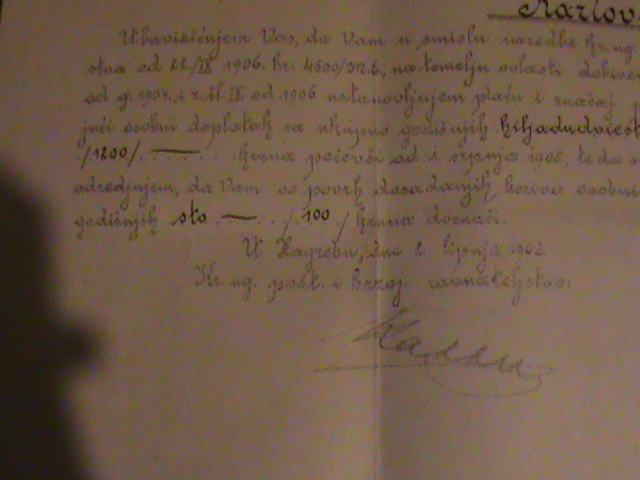 Karlov
Ubaviešćujem Vas, da Vam u smislu naredbe kr. ug.
stva od 22/IX 1906. br. 4500/M.É., na temelju vlasti dobive
od g. 1904. i z. čl. IX od 1906 ustanovljujem plaću i značaj
jući osobni doplatak sa ukupno godišnjih hiljadudviest
/1200/. kruna počevši od 1. srpnja 1906, te da
odredjujem, da Vam se povrh dosadanjih osobni
godišnjih sto /100/ kruna doznači.
U Zagrebu, dne 2. lipnja 190
Kr. ug. pošt. i brzoj. ravnateljstvo: